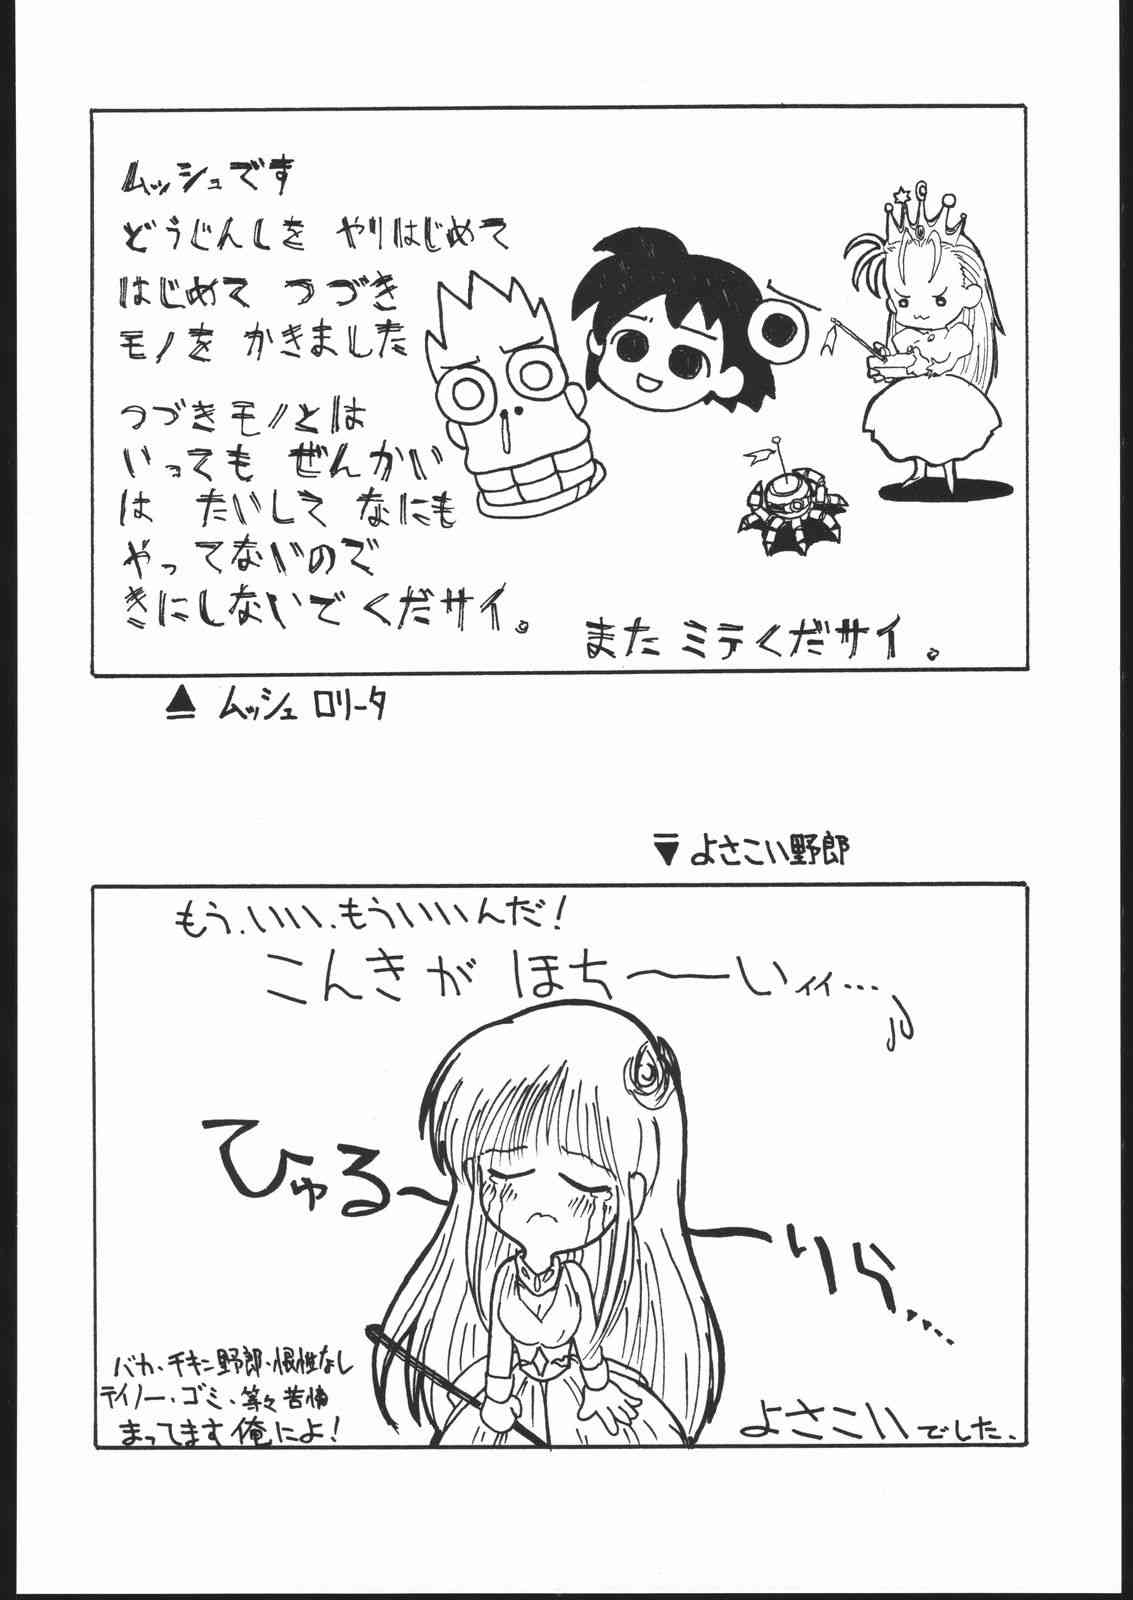 ムッシュです
どうじんしを やりはじめて
はじめて つづき
モノを かきました
つづきモノとは
いっても ぜんかい
は たいして なにも
やってないので
きにしないで くだサイ。
また ミテくだサイ。
▲ ムッシュ ロリータ
▼ よさこい野郎
もう、いい、もういいんだ!
こんきが ほち〜〜いィィ…
ひゅる〜
〜りら……
バカ・チキン野郎・根性なし
テイノー・ゴミ・等々 苦情
まってます 俺によ!
よさこいでした、